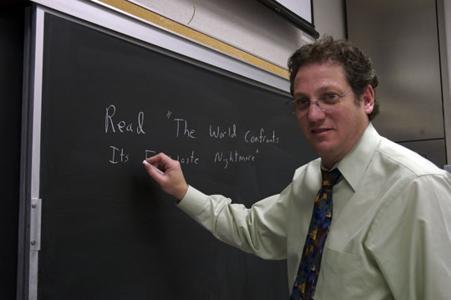 Read "The World Confronts
Its waste Nightmare"